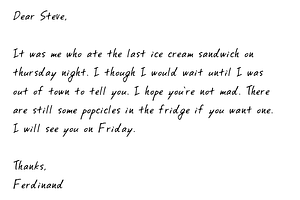 Dear Steve,
It was me who ate the last ice cream sandwich on
thursday night. I though I would wait until I was
out of town to tell you. I hope you're not mad. There
are still some popcicles in the fridge if you want one.
I will see you on Friday.
Thanks,
Ferdinand